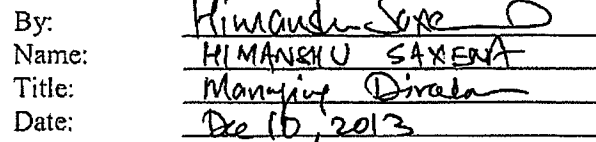 By: Himanshu Saxena
Name: HIMANSHU SAXENA
Title: Managing Director
Date: Dec 10, 2013